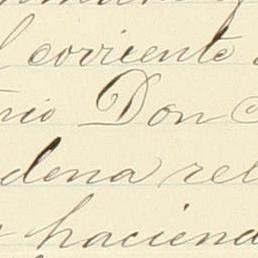 l corriente
rio Don
dena rel
haciend